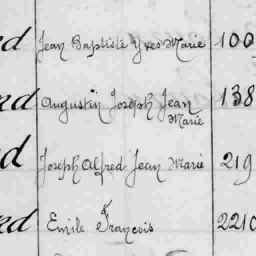 rd Jean Baptiste Yves Marie 100
rd Augustin Joseph Jean 138
Marie
d Joseph Alfred Jean Marie 219
rd Emile François 2210